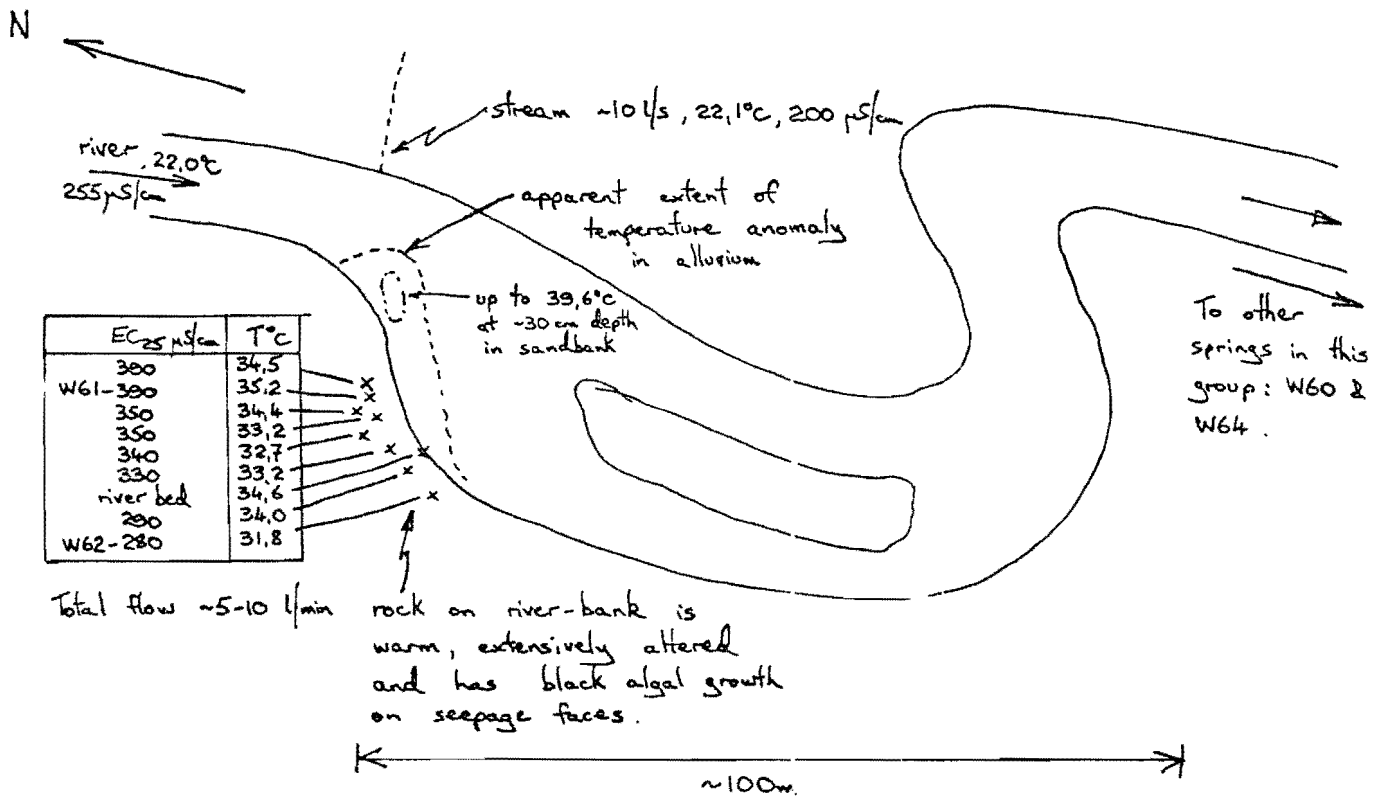 N
stream ~10 l/s, 22,1°C, 200 µS/cm
river, 22,0°C
255 µS/cm
apparent extent of
temperature anomaly
in alluvium
up to 39,6°C
at ~30 cm depth
in sandbank
EC25 µS/cm T°C
380 34,5
W61-390 35,2
350 34,4
350 33,2
340 32,7
330 33,2
river bed 34,6
290 34,0
W62-280 31,8
To other
springs in this
group: W60 &
W64.
Total flow ~5-10 l/min
rock on river-bank is
warm, extensively altered
and has black algal growth
on seepage faces.
~100m.